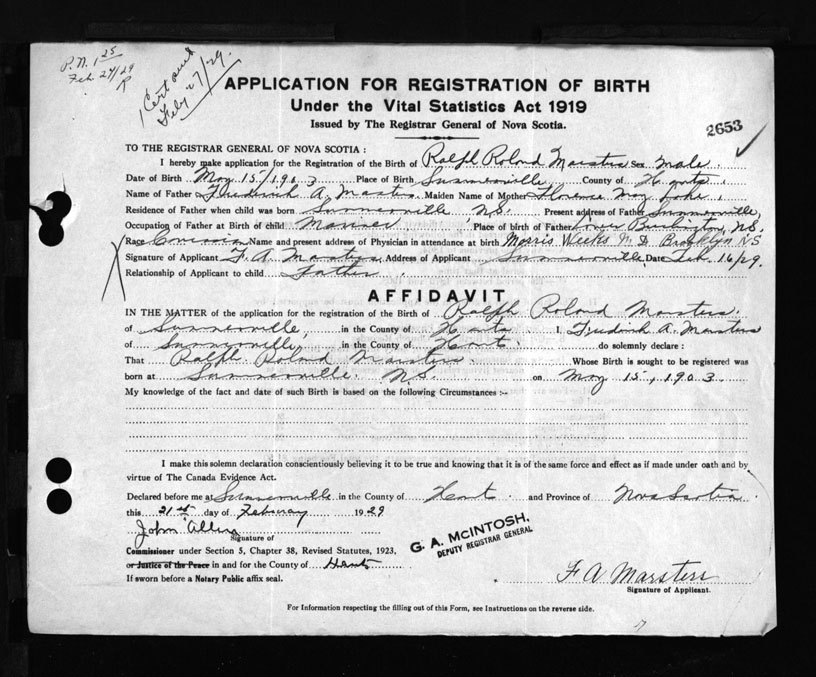 P.N. 1 25
Feb 27/29
1 Cert
Feby 27/29.
APPLICATION FOR REGISTRATION OF BIRTH
Under the Vital Statistics Act 1919
Issued by The Registrar General of Nova Scotia.
2653
TO THE REGISTRAR GENERAL OF NOVA SCOTIA :
I hereby make application for the Registration of the Birth of Ralph Roland Marsters Sex Male
Date of Birth May 15, 1903 Place of Birth Summerville County of Hants
Name of Father Fredrick A. Marsters Maiden Name of Mother Florence May
Residence of Father when child was born Summerville N.S. Present address of Father Summerville,
Occupation of Father at Birth of child Mariner Place of birth of Father Lower Burlington, N.S.
Race Name and present address of Physician in attendance at birth Morris Weeks M.D. Brooklyn N.S
Signature of Applicant F. A. Marsters Address of Applicant Summerville, Date Feb. 16/29.
Relationship of Applicant to child Father
AFFIDAVIT
IN THE MATTER of the application for the registration of the Birth of Ralph Roland Marsters.
of Summerville, in the County of Hants I, Fredrick A. Marsters
of Summerville, in the County of Hants do solemnly declare :
That Ralph Roland Marsters Whose Birth is sought to be registered was
born at Summerville. N.S. on May 15, 1903.
My knowledge of the fact and date of such Birth is based on the following Circumstances :-
I make this solemn declaration conscientiously believing it to be true and knowing that it is of the same force and effect as if made under oath and by
virtue of The Canada Evidence Act.
Declared before me at Summerville in the County of Hants and Province of Nova Scotia
this 21st day of February 1929
John Allen
Signature of
G. A. McINTOSH,
DEPUTY REGISTRAR GENERAL
Commissioner under Section 5, Chapter 38, Revised Statutes, 1923,
or Justice of the Peace in and for the County of Hants
If sworn before a Notary Public affix seal.
F A Marsters
Signature of Applicant.
For Information respecting the filling out of this Form, see Instructions on the reverse side.